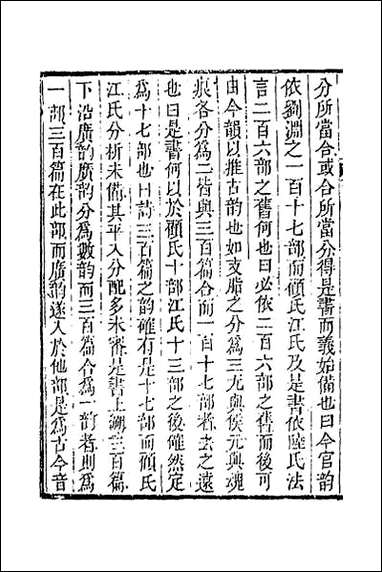 分所當合或合所當分得是書而義始備也曰今官韵
依劉淵之一百十七部而顧氏江氏及是書依陸氏法
言二百六部之舊何也曰必依二百六部之舊而後可
由今韻以推古韵也如支脂之分爲三尤與侯元與魂
痕各分爲二皆與三百篇合而一百十七部者去之遠
也曰是書何以於顧氏十部江氏十三部之後確然定
爲十七部也曰詩三百篇之韵確有是十七部而顧氏
江氏分析未備其平入分配多未審是書上溯三百篇
下沿廣韵廣韵分爲數韵而三百篇合爲一韵者則爲
一部三百篇在此部而廣韵遂入於他部是爲古今音